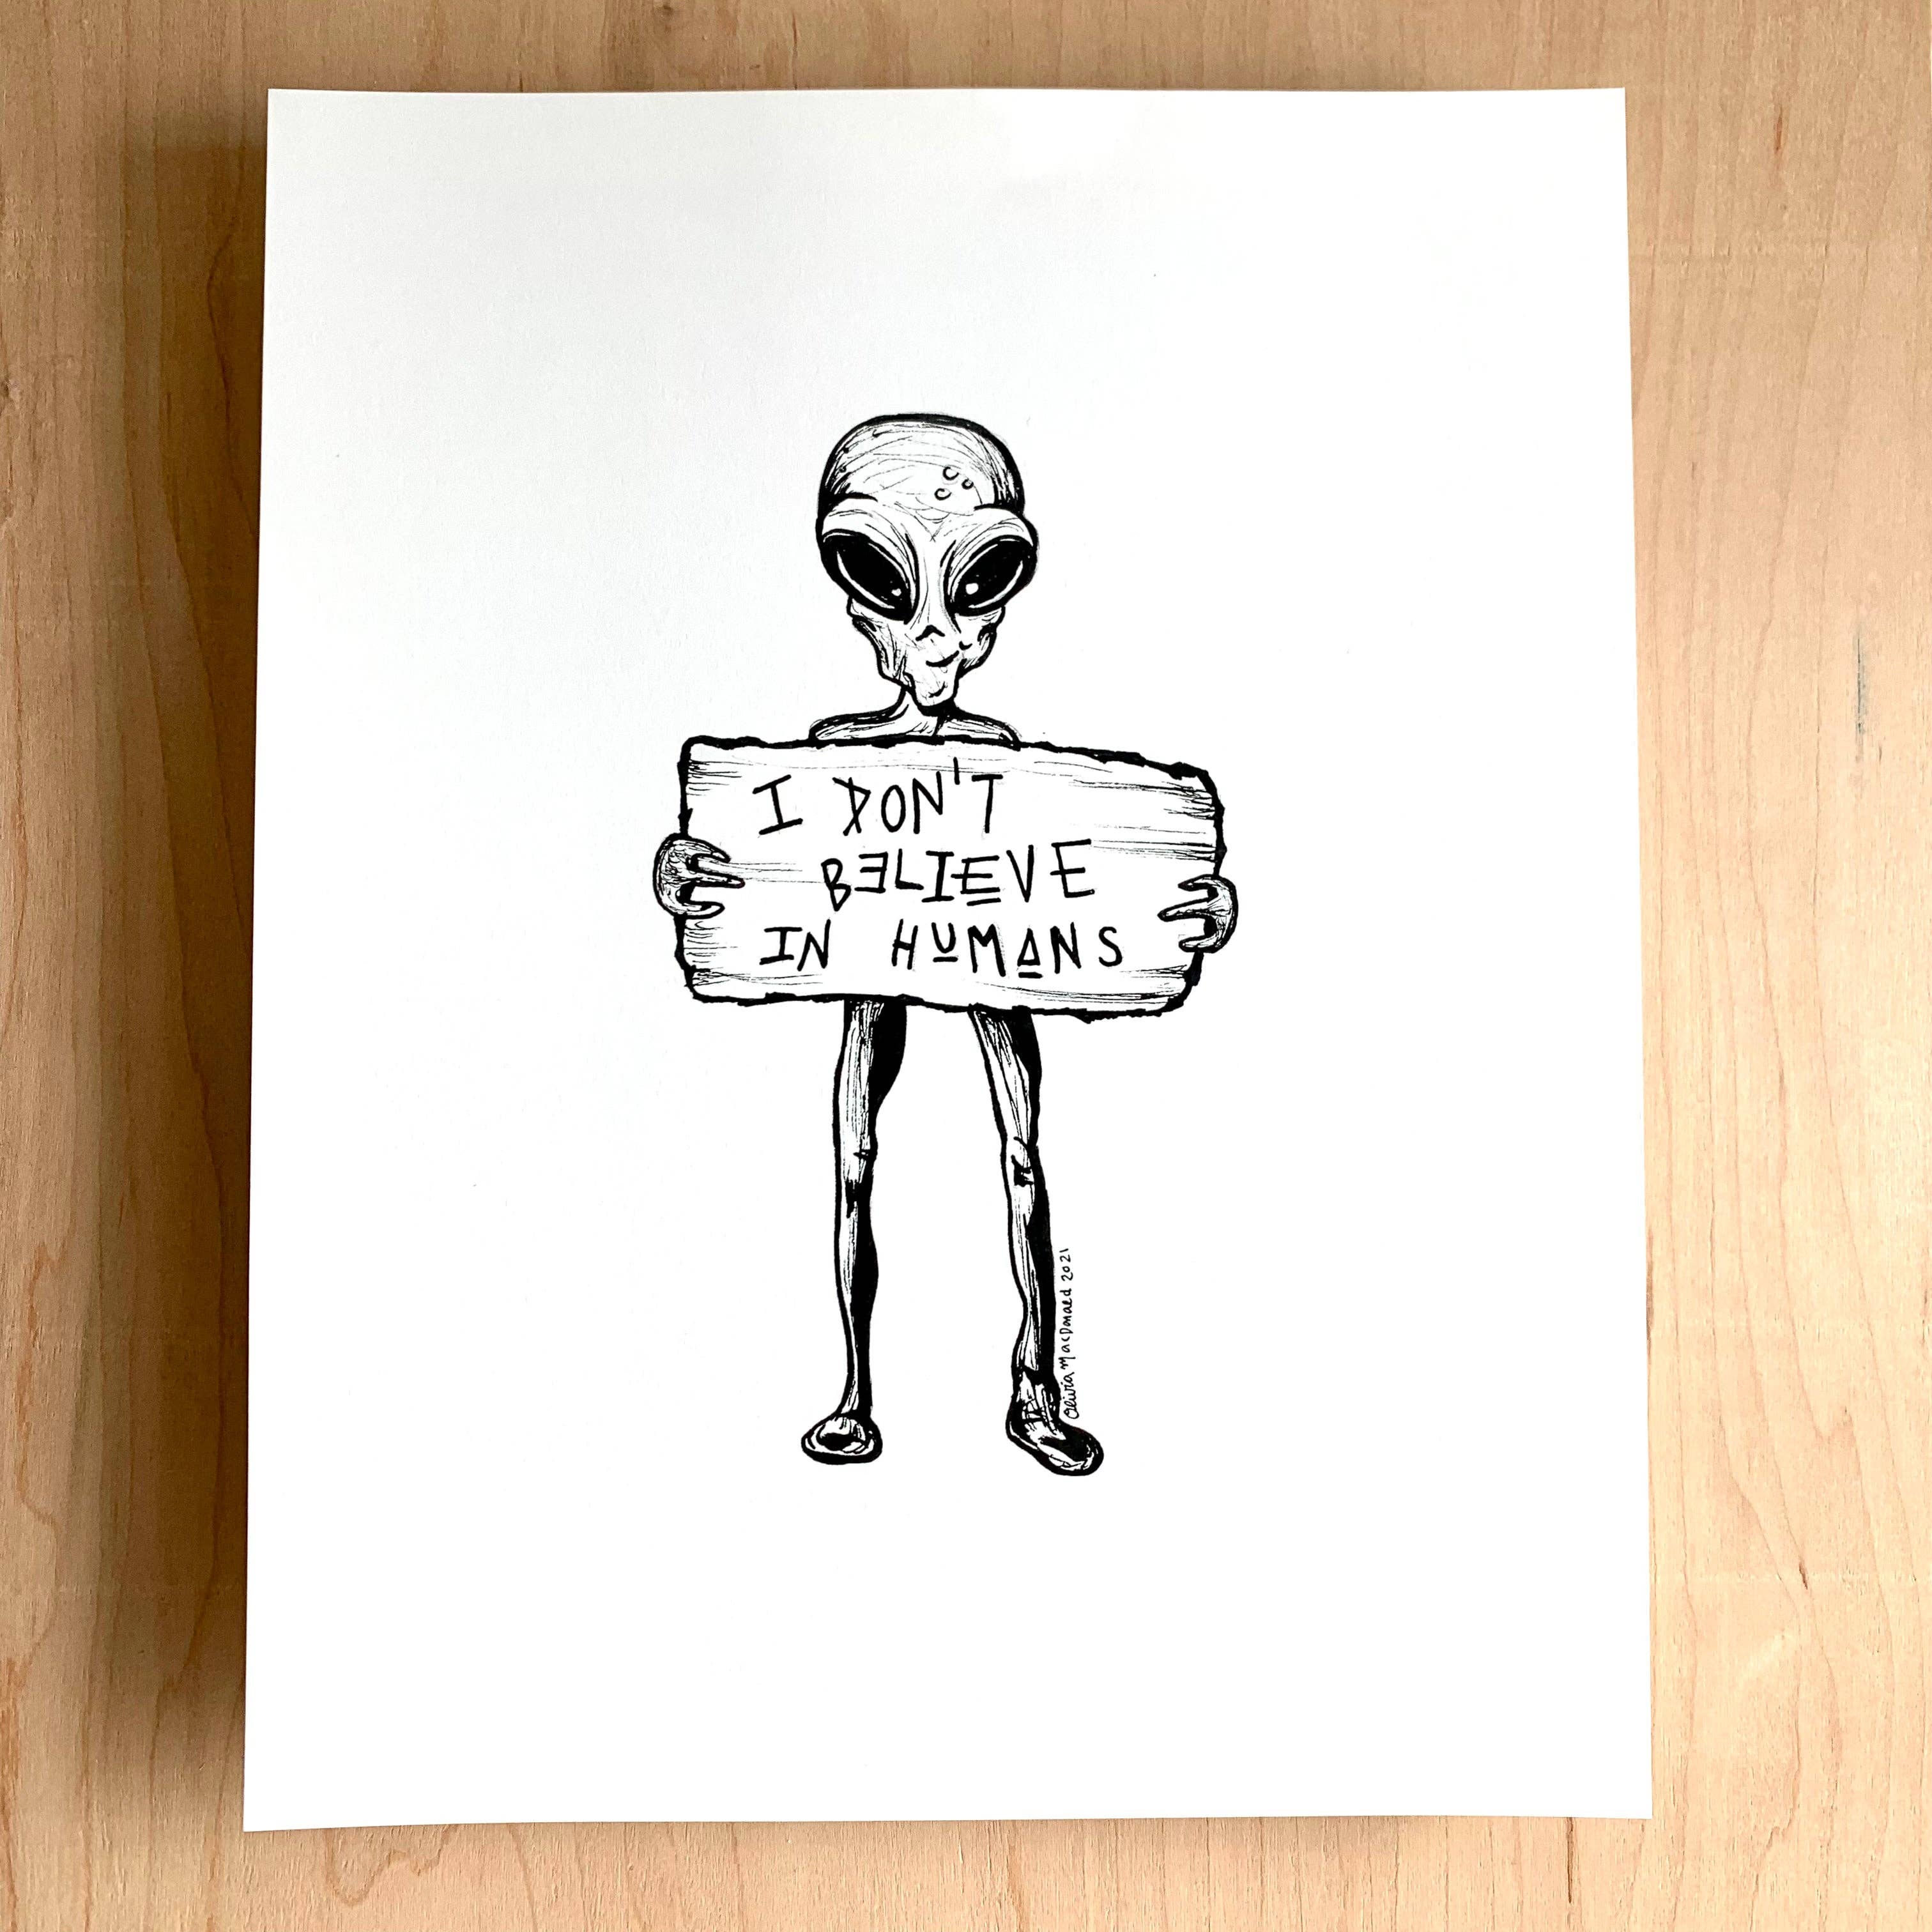 I DON'T
BELIEVE
IN HUMANS
Olivia MacDonald 2021